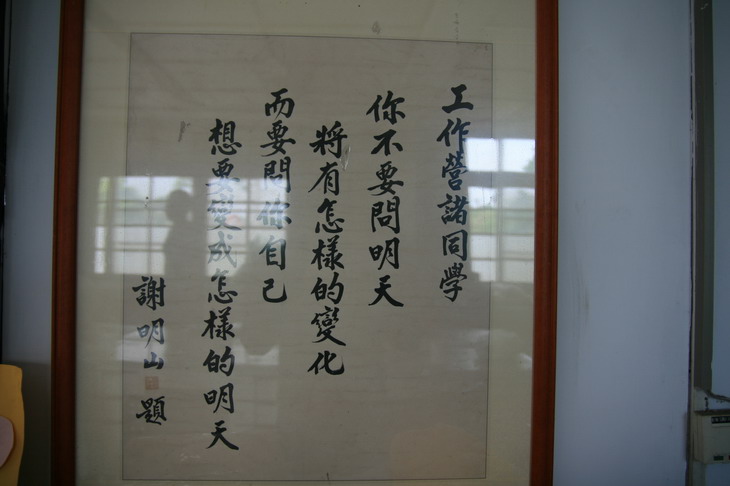 工作營諸同學
你不要問明天
將有怎樣的變化
而要問你自己
想要變成怎樣的明天
謝明山題